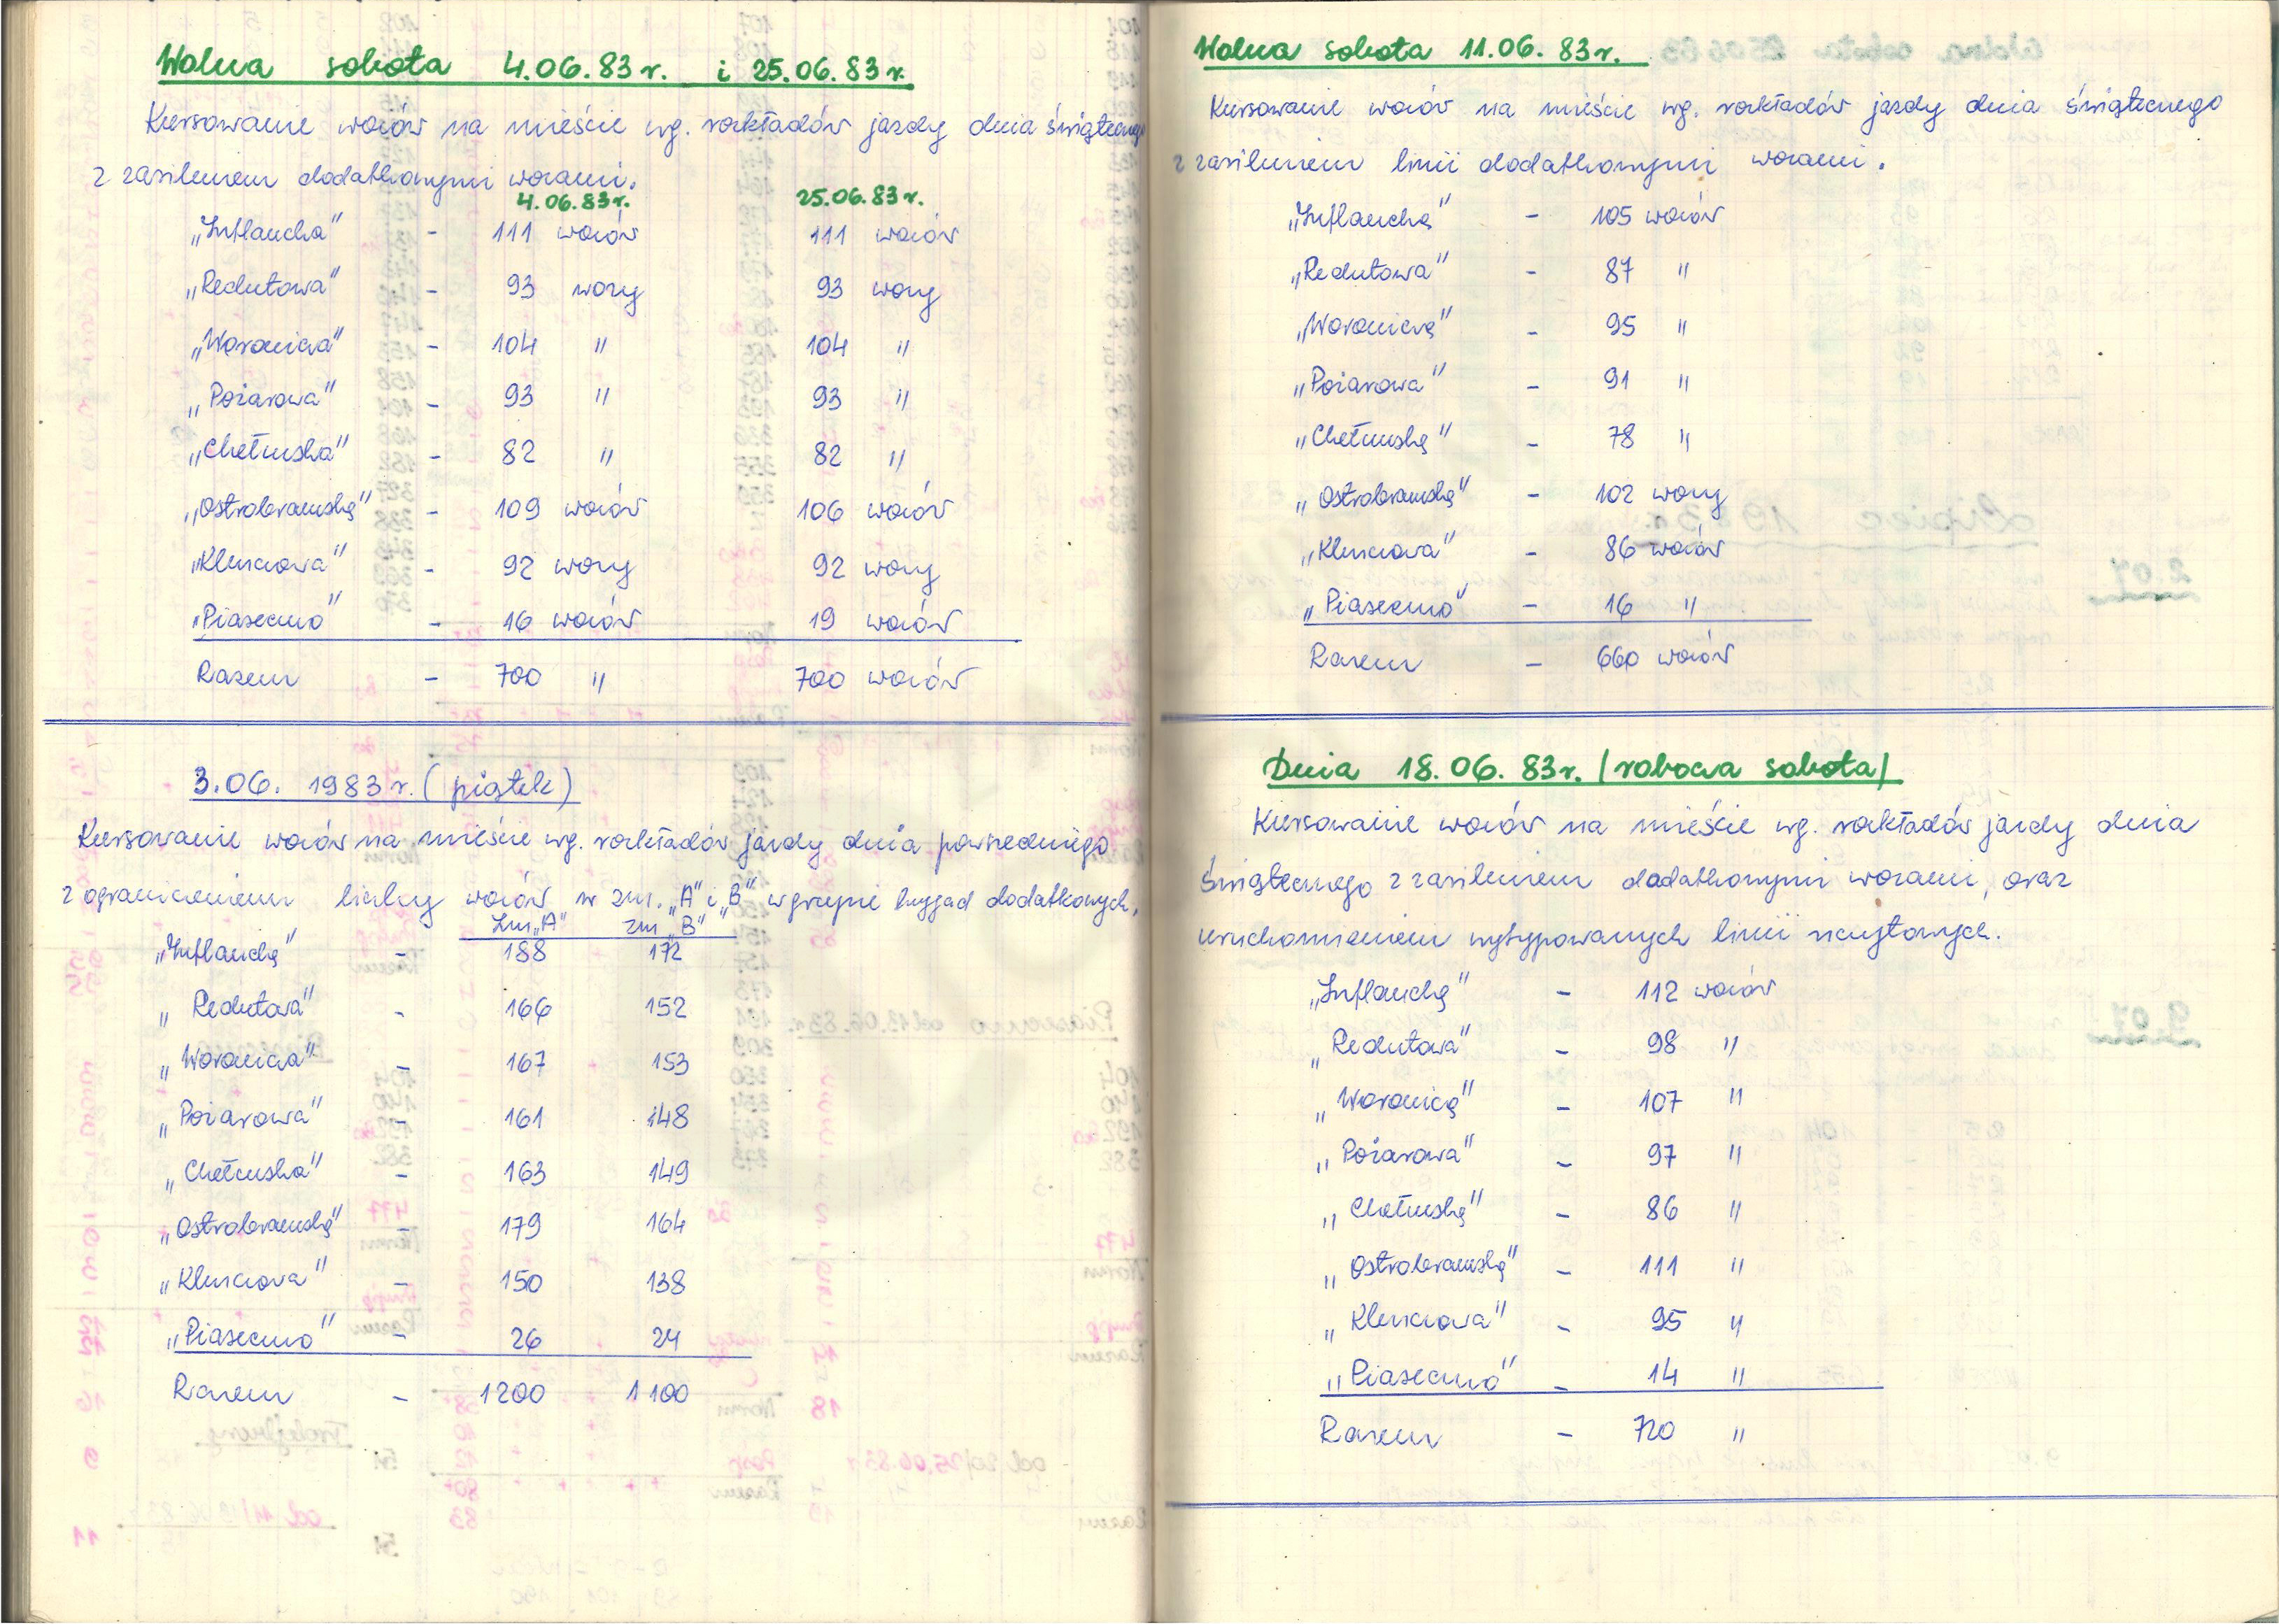 Wolna sobota 4.06.83r. i 25.06.83r.
Kursowanie wozów na mieście wg. rozkładów jazdy dnia świątecznego
z zasileniem dodatkowymi wozami.
4.06.83r. 25.06.83r.
„Inflancka" - 111 wozów 111 wozów
„Redutowa" - 93 wozy 93 wozy
„Woronicza" - 104 " 104 "
„Pożarowa" - 93 " 93 "
„Chełmska" - 82 " 82 "
„Ostrobramska" - 109 wozów 106 wozów
„Kleszczowa" - 92 wozy 92 wozy
„Piaseczno" - 16 wozów 19 wozów
Razem - 700 " 700 wozów
3.06. 1983r. (piątek)
Kursowanie wozów na mieście wg. rozkładów jazdy dnia powszedniego
z ograniczeniem liczby wozów w zm. „A" i „B" w grupie brygad dodatkowych.
Zm. „A" zm. „B"
„Inflancka" - 188 172
„Redutowa" - 166 152
„Woronicza" - 167 153
„Pożarowa" - 161 148
„Chełmska" - 163 149
„Ostrobramska" - 179 164
„Kleszczowa" - 150 138
„Piaseczno" - 26 24
Razem - 1200 1100
Wolna sobota 11.06.83r.
Kursowanie wozów na mieście wg. rozkładów jazdy dnia świątecznego
z zasileniem linii dodatkowymi wozami.
„Inflancka" - 105 wozów
„Redutowa" - 87 "
„Woronicza" - 95 "
„Pożarowa" - 91 "
„Chełmska" - 78 "
„Ostrobramska" - 102 wozy
„Kleszczowa" - 86 wozów
„Piaseczno" - 16 "
Razem - 660 wozów
Dnia 18.06.83r. /robocza sobota/
Kursowanie wozów na mieście wg. rozkładów jazdy dnia
świątecznego z zasileniem dodatkowymi wozami, oraz
uruchomieniem wytypowanych linii szczytowych.
„Inflancka" - 112 wozów
„Redutowa" - 98 "
„Woronicza" - 107 "
„Pożarowa" - 97 "
„Chełmska" - 86 "
„Ostrobramska" - 111 "
„Kleszczowa" - 95 "
„Piaseczno" - 14 "
Razem - 720 "